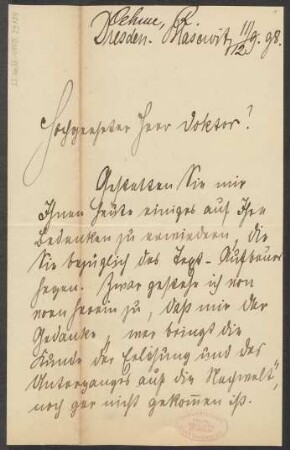 Oehme, R.
Dresden. Blasewitz 11/12. 9. 98.
Hochgeehrter Herr Doktor!
Gestatten Sie mir
Ihnen heute einiges auf Ihre
Bedenken zu erwiedern, die
Sie bezüglich des Text-Aufbaues
hegen. Zwar gestehe ich von
vorn herein zu, daß mir der
Gedanke „wer bringt die
Kunde der Erlösung und des
Unterganges auf die Nachwelt",
noch gar nicht gekommen ist.